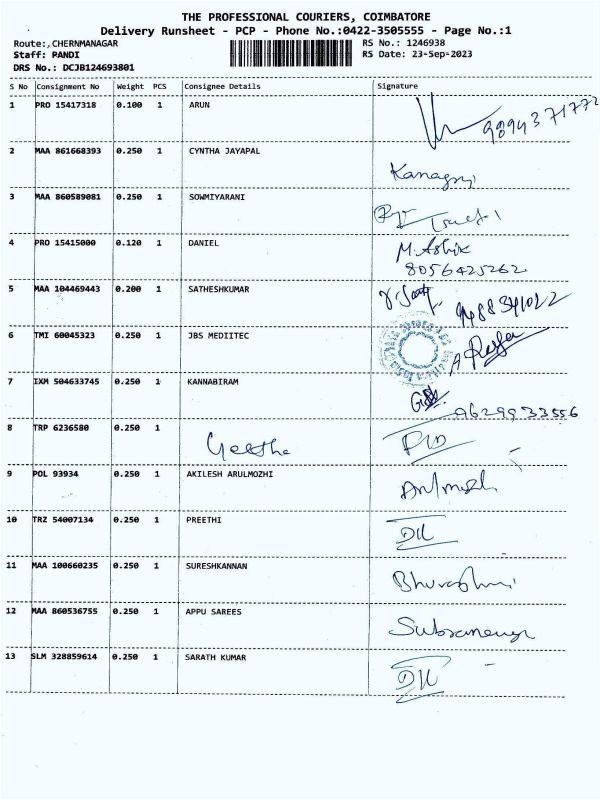 THE PROFESSIONAL COURIERS, COIMBATORE
Delivery Runsheet - PCP - Phone No.:0422-3505555 - Page No.:1
Route:,CHERNMANAGAR RS No.: 1246938
Staff: PANDI RS Date: 23-Sep-2023
DRS No.: DCJB124693801
S No Consignment No Weight PCS Consignee Details Signature
1 PRO 15417318 0.100 1 ARUN
9894371772
2 MAA 861668393 0.250 1 CYNTHA JAYAPAL
3 MAA 860589081 0.250 1 SOWMIYARANI
4 PRO 15415000 0.120 1 DANIEL M. Ashik
8056425262
5 MAA 104469443 0.200 1 SATHESHKUMAR
9488341022
6 TMI 60045323 0.250 1 JBS MEDIITEC
7 IXM 504633745 0.250 1 KANNABIRAM
9629933556
8 TRP 6236580 0.250 1 Geetha
9 POL 93934 0.250 1 AKILESH ARULMOZHI
10 TRZ 54007134 0.250 1 PREETHI
11 MAA 100660235 0.250 1 SURESHKANNAN
12 MAA 860536755 0.250 1 APPU SAREES
13 SLM 328859614 0.250 1 SARATH KUMAR